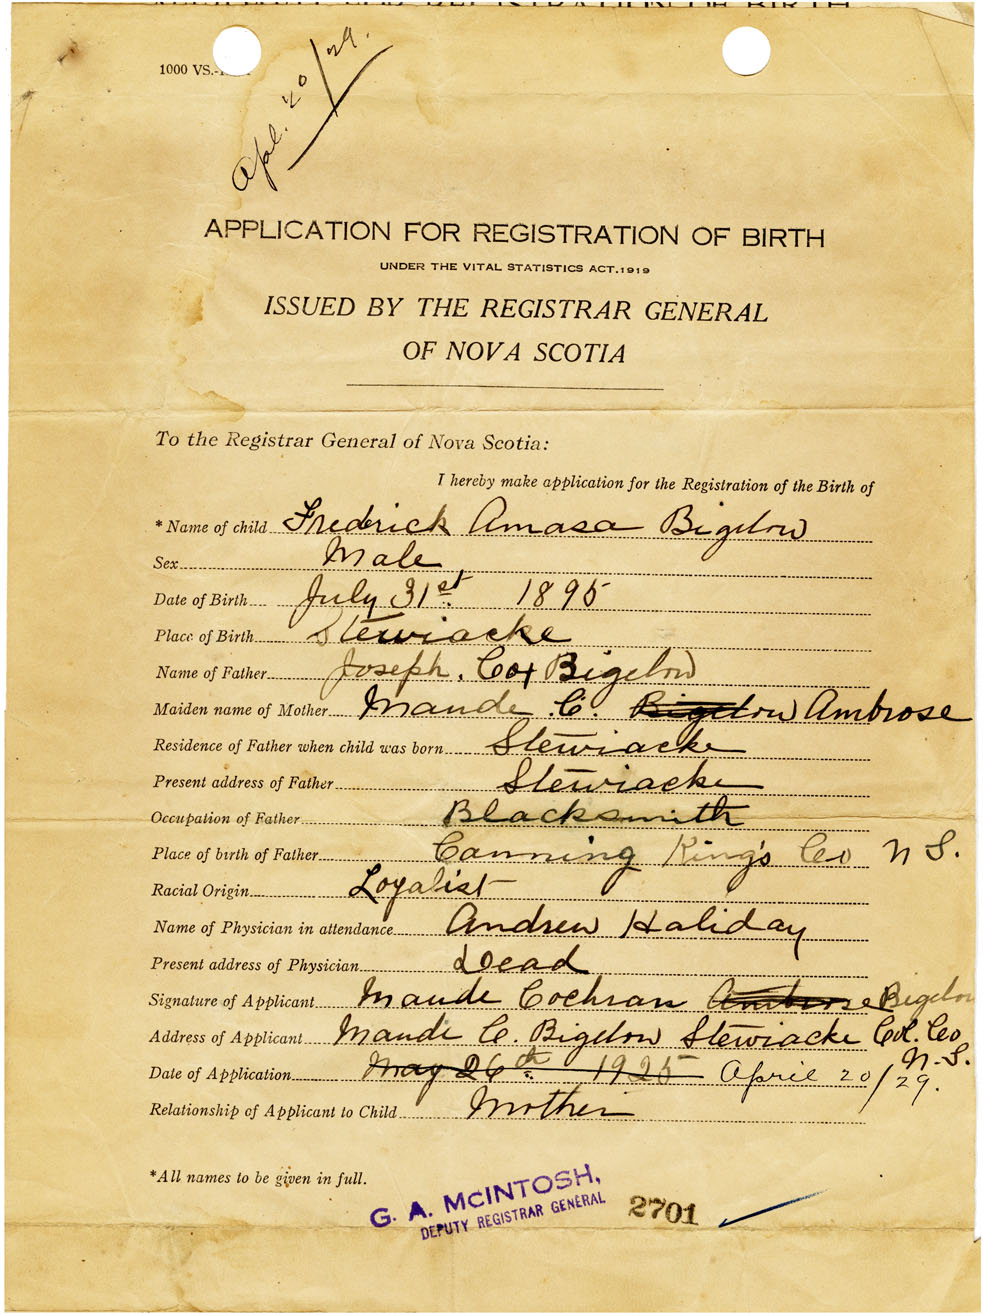 1000 VS.-
Apl. 20/29.
APPLICATION FOR REGISTRATION OF BIRTH
UNDER THE VITAL STATISTICS ACT. 1919
ISSUED BY THE REGISTRAR GENERAL
OF NOVA SCOTIA
To the Registrar General of Nova Scotia:
I hereby make application for the Registration of the Birth of
* Name of child Fredrick Amasa Bigelow
Sex Male
Date of Birth July 31st 1895
Place of Birth Stewiacke
Name of Father Joseph. Cox Bigelow
Maiden name of Mother Maude .C. Bigelow Ambrose
Residence of Father when child was born Stewiacke
Present address of Father Stewiacke
Occupation of Father Blacksmith
Place of birth of Father Canning King's Co N S.
Racial Origin Loyalist
Name of Physician in attendance Andrew Haliday
Present address of Physician Dead
Signature of Applicant Maude Cochran Ambrose Bigelow
Address of Applicant Maude C. Bigelow Stewiacke Col. Co. N.S.
Date of Application May 26th 1925 April 20/29.
Relationship of Applicant to Child Mother
*All names to be given in full.
G. A. McINTOSH,
DEPUTY REGISTRAR GENERAL
2701